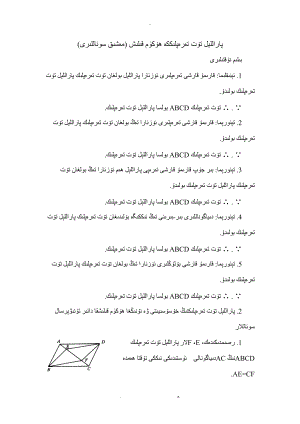 پاراللېل تۆت تەرەپلىككە ھۆكۈم قىلىش (مەشىق سوئاللىرى)
بىلىم نۇقتىلىرى
1. ئېنىقلىما: قارىمۇ قارشى تەرەپلىرى ئۆزئارا پاراللېل بولغان تۆت تەرەپلىك پاراللېل تۆت
تەرەپلىك بولىدۇ.
∵ . ∴ تۆت تەرەپلىك ABCD بولسا پاراللېل تۆت تەرەپلىك.
2. تېئورېما: قارىمۇ قارشى تەرەپلىرى ئۆزئارا تەڭ بولغان تۆت تەرەپلىك پاراللېل تۆت
تەرەپلىك بولىدۇ.
∵ . ∴ تۆت تەرەپلىك ABCD بولسا پاراللېل تۆت تەرەپلىك.
3. تېئورېما: بىر جۈپ قارىمۇ قارشى تەرىپى پاراللېل ھەم ئۆزئارا تەڭ بولغان تۆت
تەرەپلىك پاراللېل تۆت تەرەپلىك بولىدۇ.
∵ . ∴ تۆت تەرەپلىك ABCD بولسا پاراللېل تۆت تەرەپلىك.
4. تېئورېما: دىياگوناللىرى بىر-بىرىنى تەڭ ئىككىگە بۆلىدىغان تۆت تەرەپلىك پاراللېل تۆت
تەرەپلىك بولىدۇ.
∵ . ∴ تۆت تەرەپلىك ABCD بولسا پاراللېل تۆت تەرەپلىك.
5. تېئورېما: قارىمۇ قارشى بۇلۇڭلىرى ئۆزئارا تەڭ بولغان تۆت تەرەپلىك پاراللېل تۆت
تەرەپلىك بولىدۇ.
∵ . ∴ تۆت تەرەپلىك ABCD بولسا پاراللېل تۆت تەرەپلىك.
2. پاراللېل تۆت تەرەپلىكنىڭ خۇسۇسىيىتى ۋە ئۇنىڭغا ھۆكۈم قىلىشقا دائىر ئۇنىۋېرسال
سوئاللار
1. رەسىمدىكىدەك، E، Fلار پاراللېل تۆت تەرەپلىك
ABCDنىڭ ACدىياگونالى ئۈستىدىكى ئىككى نۇقتا ھەمدە
AE=CF.
A D
E
F
B C